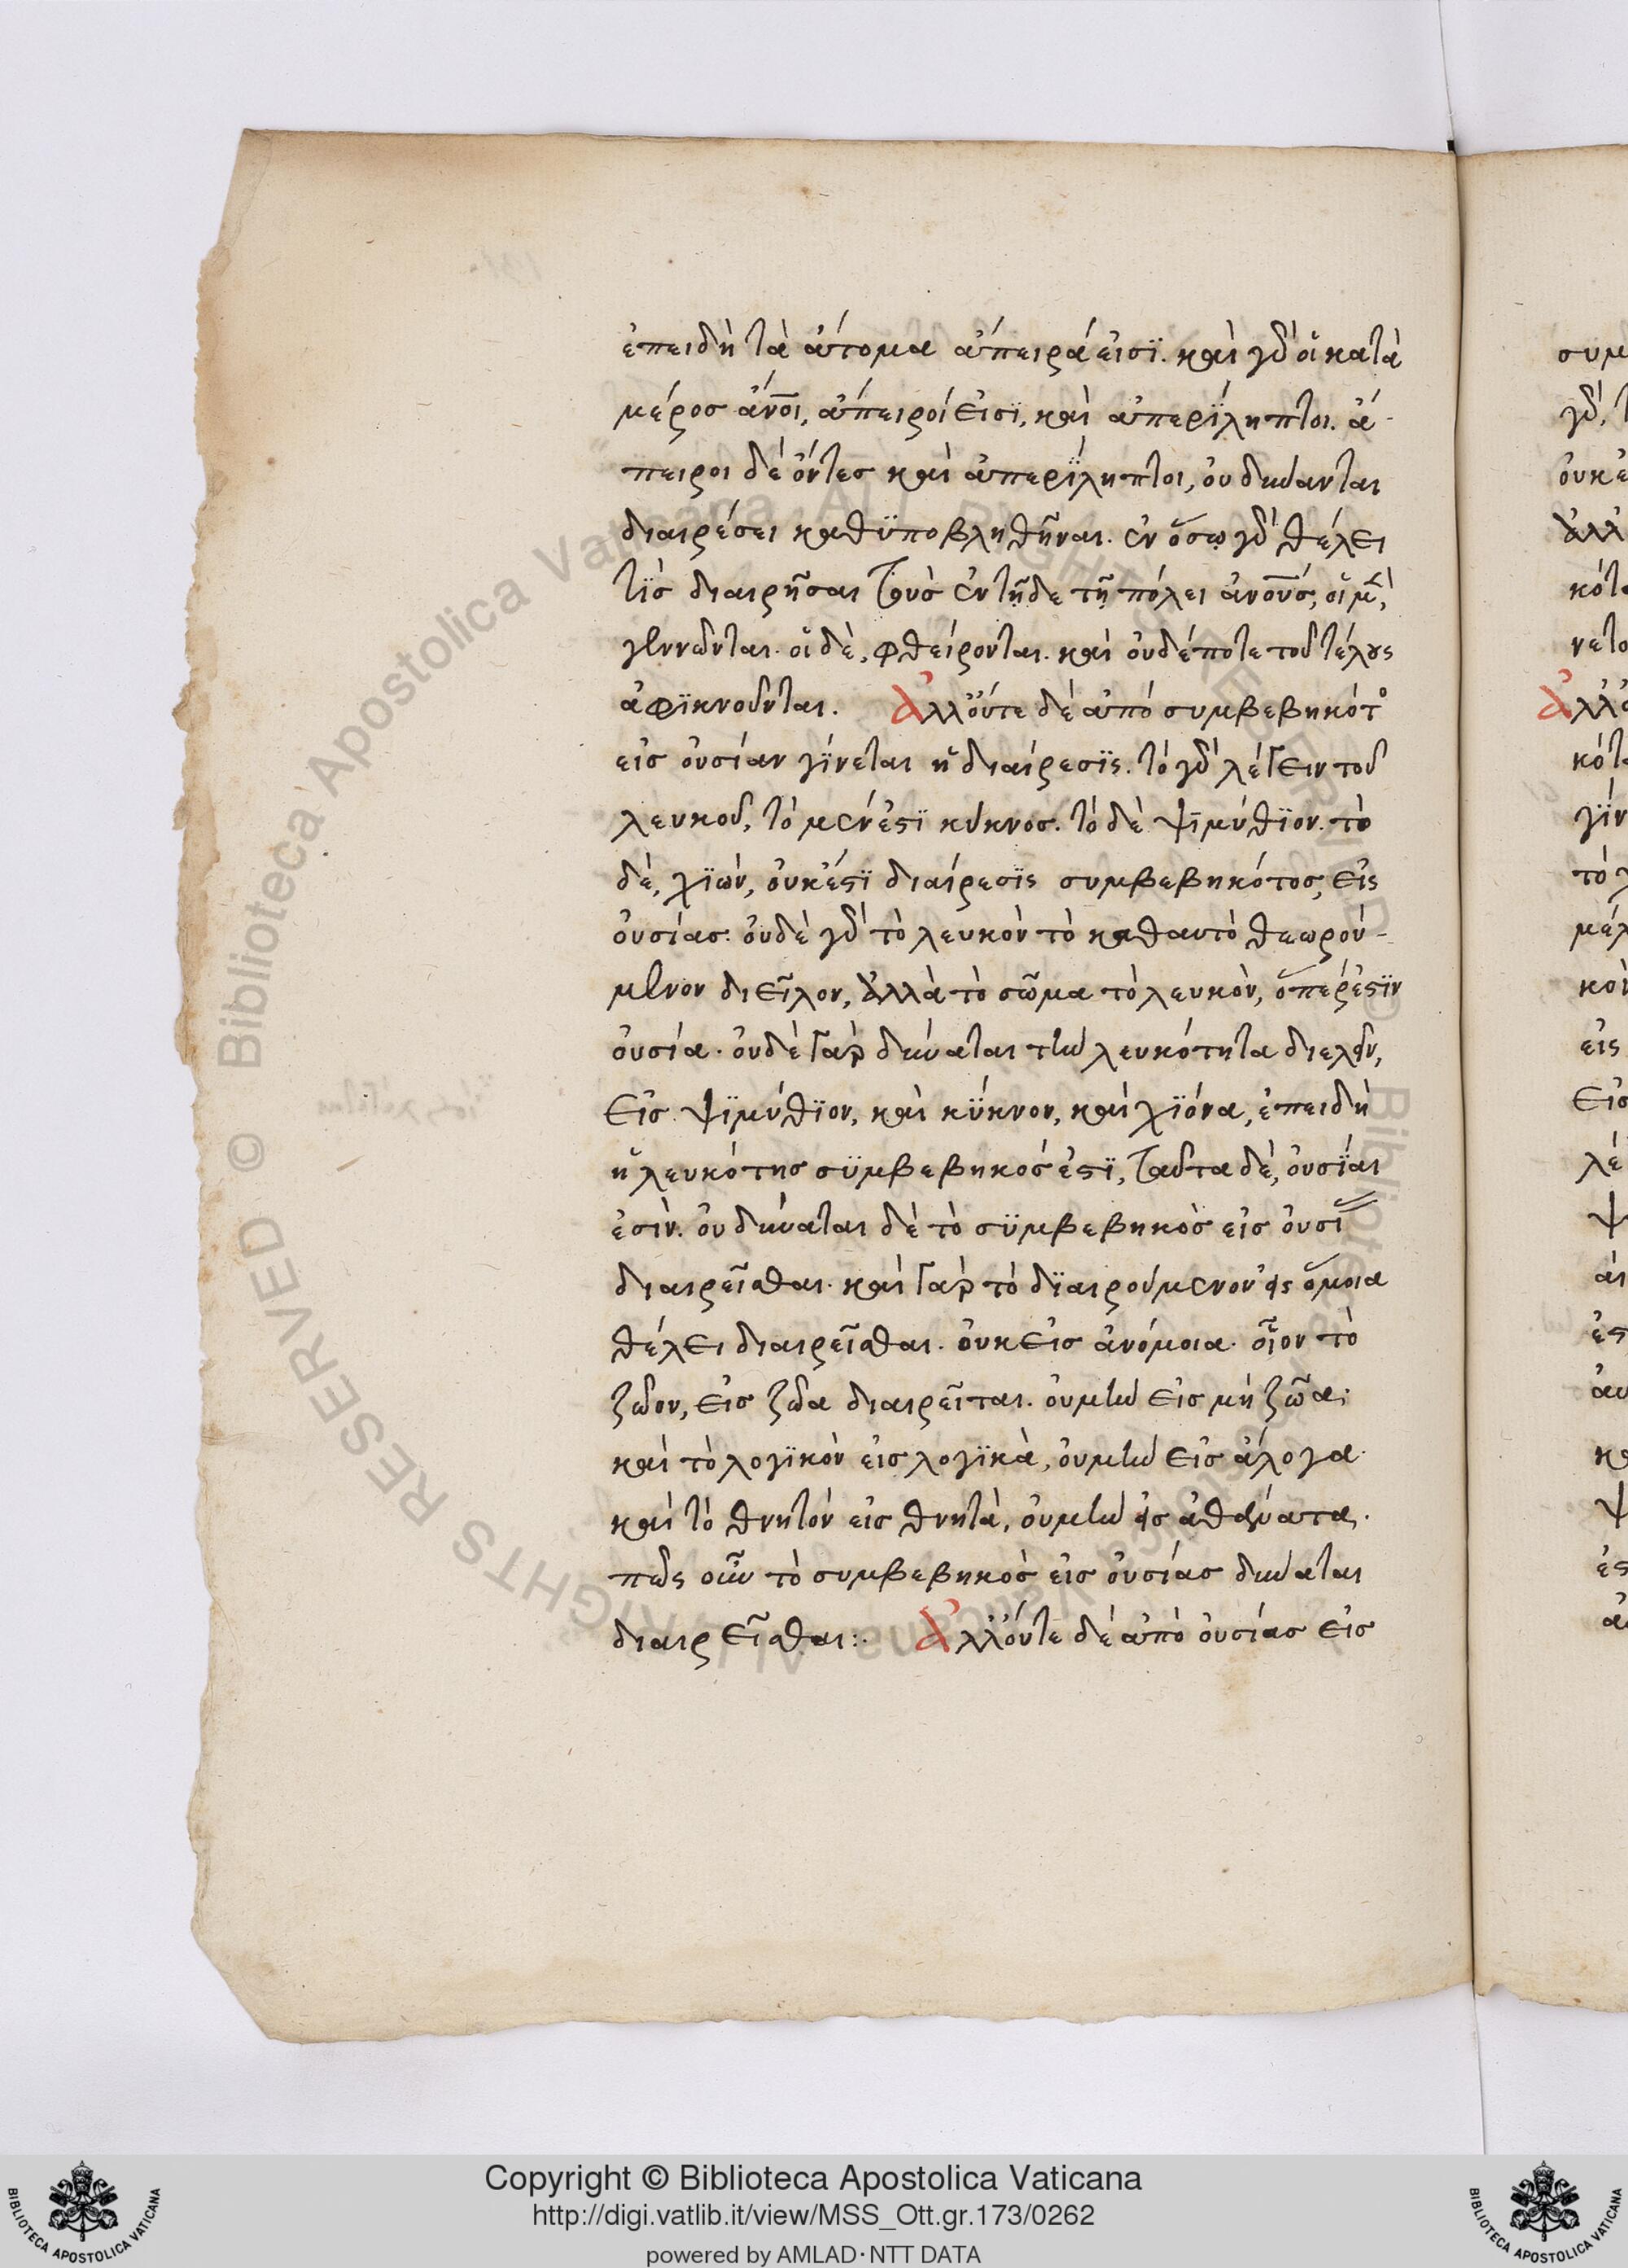 ἐπειδὴ τὰ ἄτομα ἄπειρά εἰσϊ. καὶ γὰρ οἱ κατὰ
μέρος ἄνοι, ἄπειροί εἰσϊ, καὶ ἀπερίληπτοι. ἄ-
πειροι δὲ ὄντες καὶ ἀπερίληπτοι, οὐ δύνανται
διαιρέσει καθϋποβληθῆναι. ἐν ὅσω γὰρ θέλει
τὶς διαιρῆσαι τοὺς ἐν τῇδε τῇ πόλει ἀνους, οἱ μὲν,
γεννῶνται. οἱ δὲ, φθείρονται. καὶ οὐδέποτε τοῦ τέλους
ἀφϊκνοῦνται. Ἀλλ' οὔτε δὲ ἀπὸ συμβεβηκότος
εἰς οὐσίαν γίνεται ἡ διαίρεσϊς. τὸ γὰρ λέγειν τοῦ
λευκοῦ, τὸ μέν ἐστϊ κύκνος. τὸ δὲ ψϊμύθϊον. τὸ
δὲ, χϊών, οὐκ ἔστϊ διαίρεσϊς συμβεβηκότος, εἰς
οὐσίας. οὐδὲ γὰρ τὸ λευκὸν τὸ καθαυτὸ θεωρού-
μενον διεῖλον, ἀλλὰ τὸ σῶμα τὸ λευκὸν, ὅπέρ ἐστϊν
οὐσία. οὐδὲ γὰρ δύναται τὴν λευκότητα διελεῖν,
εἰς ψϊμύθϊον, καὶ κύκνον, καὶ χϊόνα, ἐπειδὴ
ἡ λευκότης σϋμβεβηκός ἐστϊ, ταῦτα δὲ, οὐσίαι
ἐσὶν. οὐ δύναται δὲ τὸ σϋμβεβηκὸς εἰς οὐσί
διαιρεῖσθαι. καὶ γὰρ τὸ δϊαιρούμενον εἰς ὅμοια
θέλει διαιρεῖσθαι. οὐκ εἰς ἀνόμοια. οἷον τὸ
ζῶον, εἰς ζῶα διαιρεῖται. οὐμὴν εἰς μὴ ζῶα;
καὶ τὸ λογϊκὸν εἰς λογϊκὰ, οὐμὴν εἰς ἄλογα.
καὶ τὸ θνητὸν εἰς θνητὰ, οὐμὴν εἰς ἀθάνατα.
πῶς οὖν τὸ συμβεβηκὸς εἰς οὐσίας δύναται
διαιρεῖσθαι:. Ἀλλ' οὔτε δὲ ἀπὸ οὐσίας εἰς
Copyright © Biblioteca Apostolica Vaticana
http://digi.vatlib.it/view/MSS_Ott.gr.173/0262
powered by AMLAD·NTT DATA